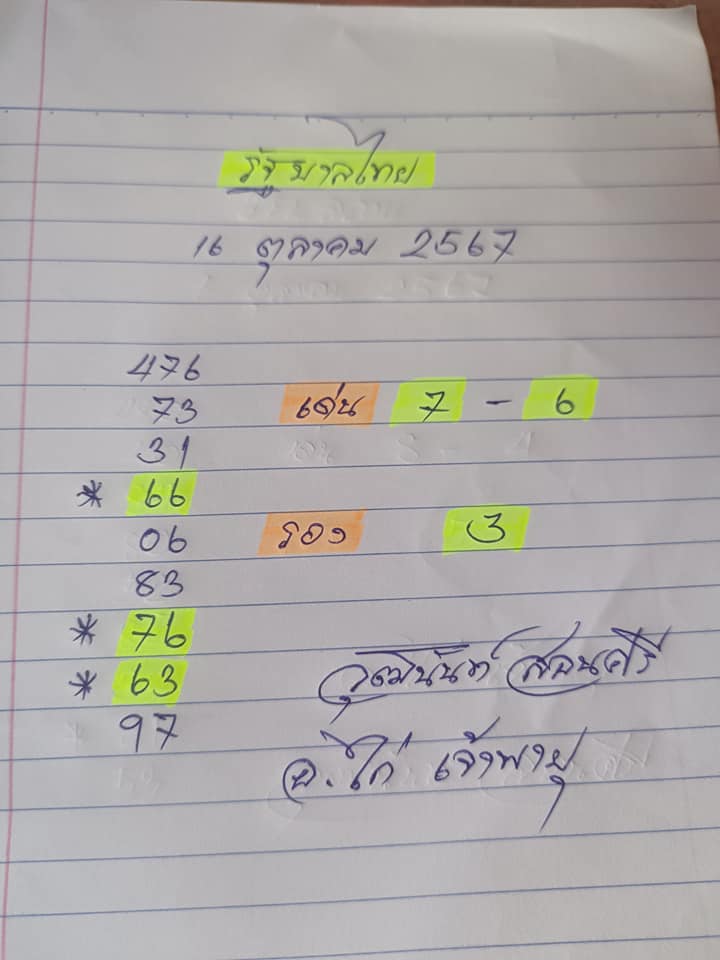 รัฐบาลไทย
16 ตุลาคม 2567
476
73 เด่น 7 - 6
31
* 66
06 รอง 3
83
* 76
* 63 วุฒินันท์ สอนศรี
97 อ.ไก่ เจ้าพายุ